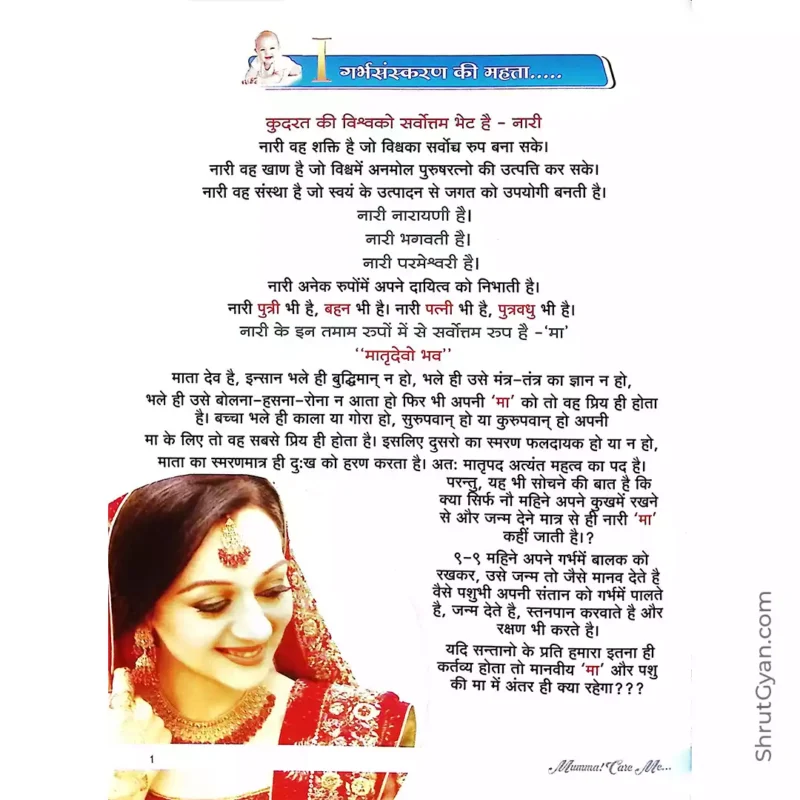 1 गर्भसंस्करण की महत्ता.....
कुदरत की विश्वको सर्वोत्तम भेट है - नारी
नारी वह शक्ति है जो विश्वका सर्वोच्च रुप बना सके।
नारी वह खाण है जो विश्वमें अनमोल पुरुषरत्नो की उत्पत्ति कर सके।
नारी वह संस्था है जो स्वयं के उत्पादन से जगत को उपयोगी बनती है।
नारी नारायणी है।
नारी भगवती है।
नारी परमेश्वरी है।
नारी अनेक रुपोंमें अपने दायित्व को निभाती है।
नारी पुत्री भी है, बहन भी है। नारी पत्नी भी है, पुत्रवधु भी है।
नारी के इन तमाम रुपों में से सर्वोत्तम रुप है -‘मा’
‘‘मातृदेवो भव’’
माता देव है, इन्सान भले ही बुद्धिमान् न हो, भले ही उसे मंत्र-तंत्र का ज्ञान न हो,
भले ही उसे बोलना-हसना-रोना न आता हो फिर भी अपनी ‘मा’ को तो वह प्रिय ही होता
है। बच्चा भले ही काला या गोरा हो, सुरुपवान् हो या कुरुपवान् हो अपनी
मा के लिए तो वह सबसे प्रिय ही होता है। इसलिए दुसरो का स्मरण फलदायक हो या न हो,
माता का स्मरणमात्र ही दु:ख को हरण करता है। अत: मातृपद अत्यंत महत्व का पद है।
परन्तु, यह भी सोचने की बात है कि
क्या सिर्फ नौ महिने अपने कुखमें रखने
से और जन्म देने मात्र से ही नारी ‘मा’
कहीं जाती है।?
९-९ महिने अपने गर्भमें बालक को
रखकर, उसे जन्म तो जैसे मानव देते है
वैसे पशुभी अपनी संतान को गर्भमें पालते
है, जन्म देते है, स्तनपान करवाते है और
रक्षण भी करते है।
यदि सन्तानो के प्रति हमारा इतना ही
कर्तव्य होता तो मानवीय ‘मा’ और पशु
की मा में अंतर ही क्या रहेगा???
1
Mumma! Care Me...
ShrutGyan.com